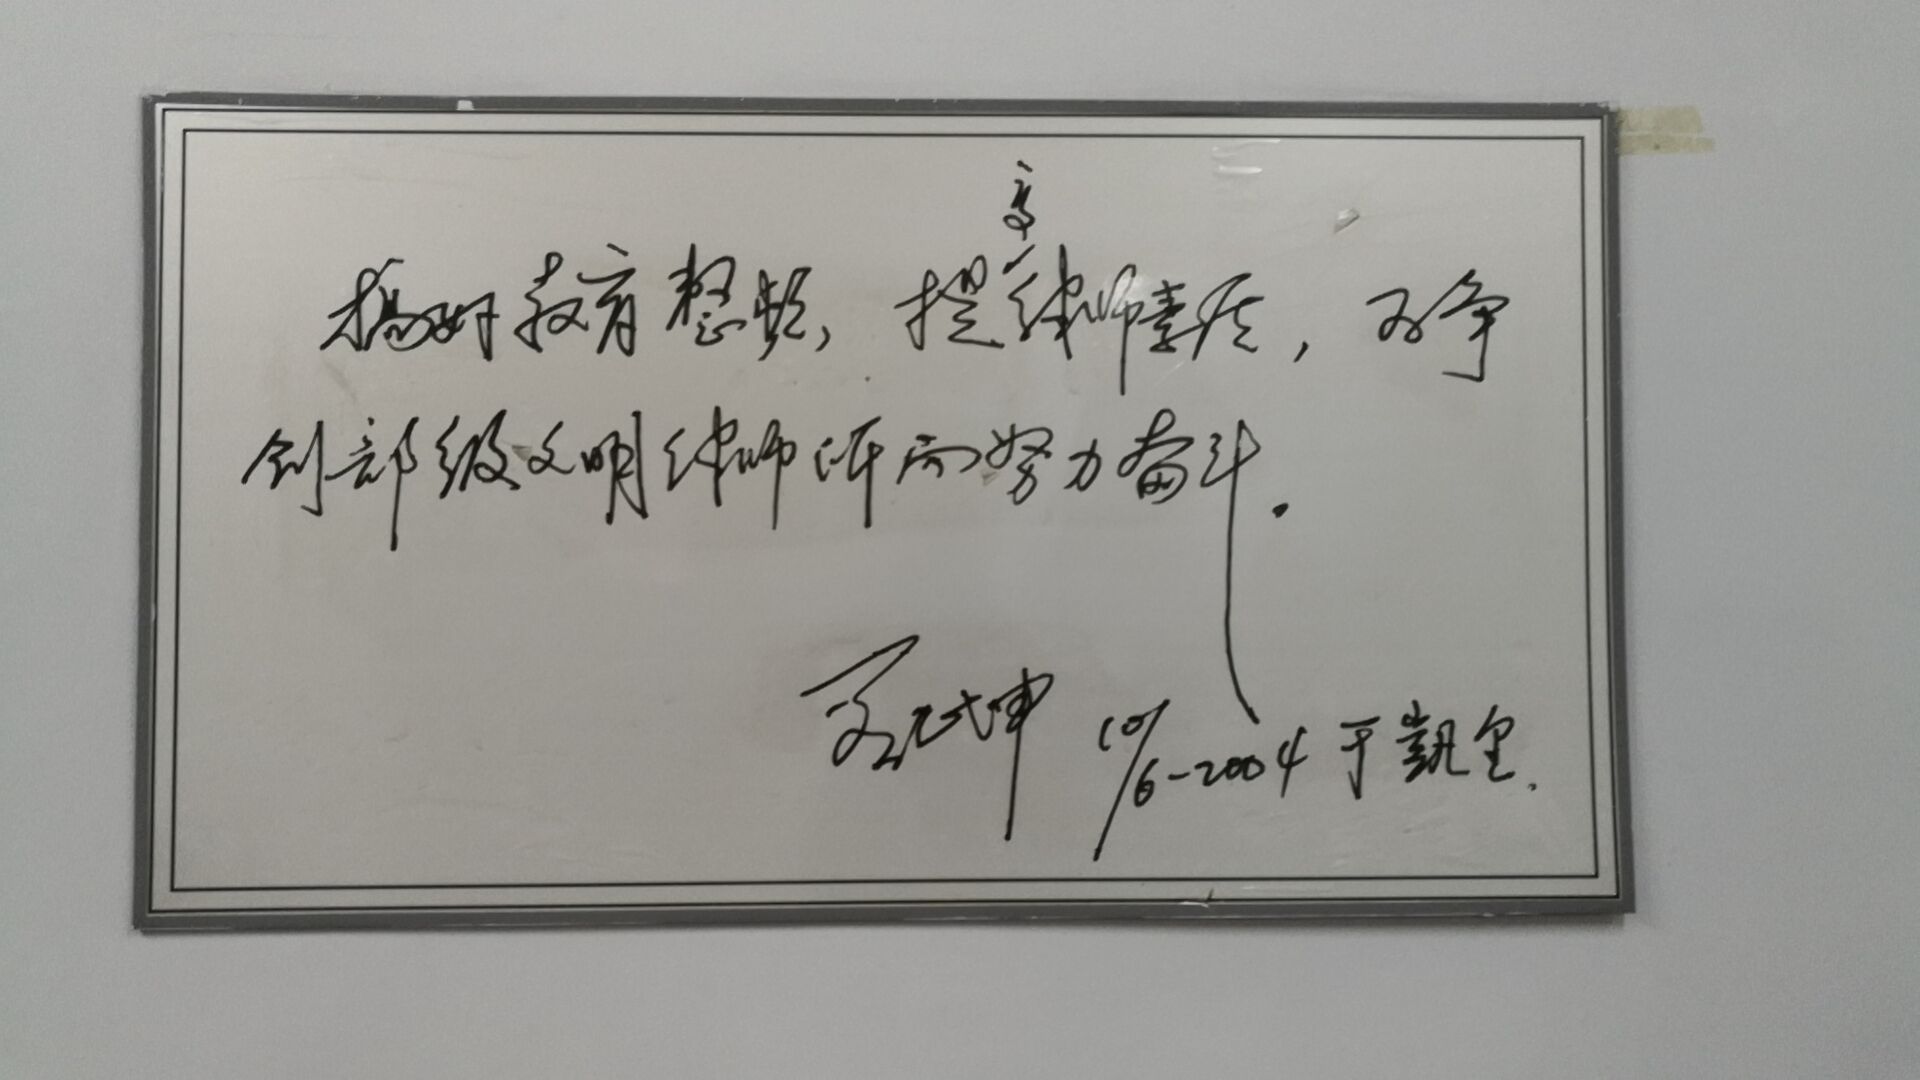 搞好教育整顿，提高律师素质，为争
创部级文明律师所而努力奋斗．
10/6-2004于凯里．